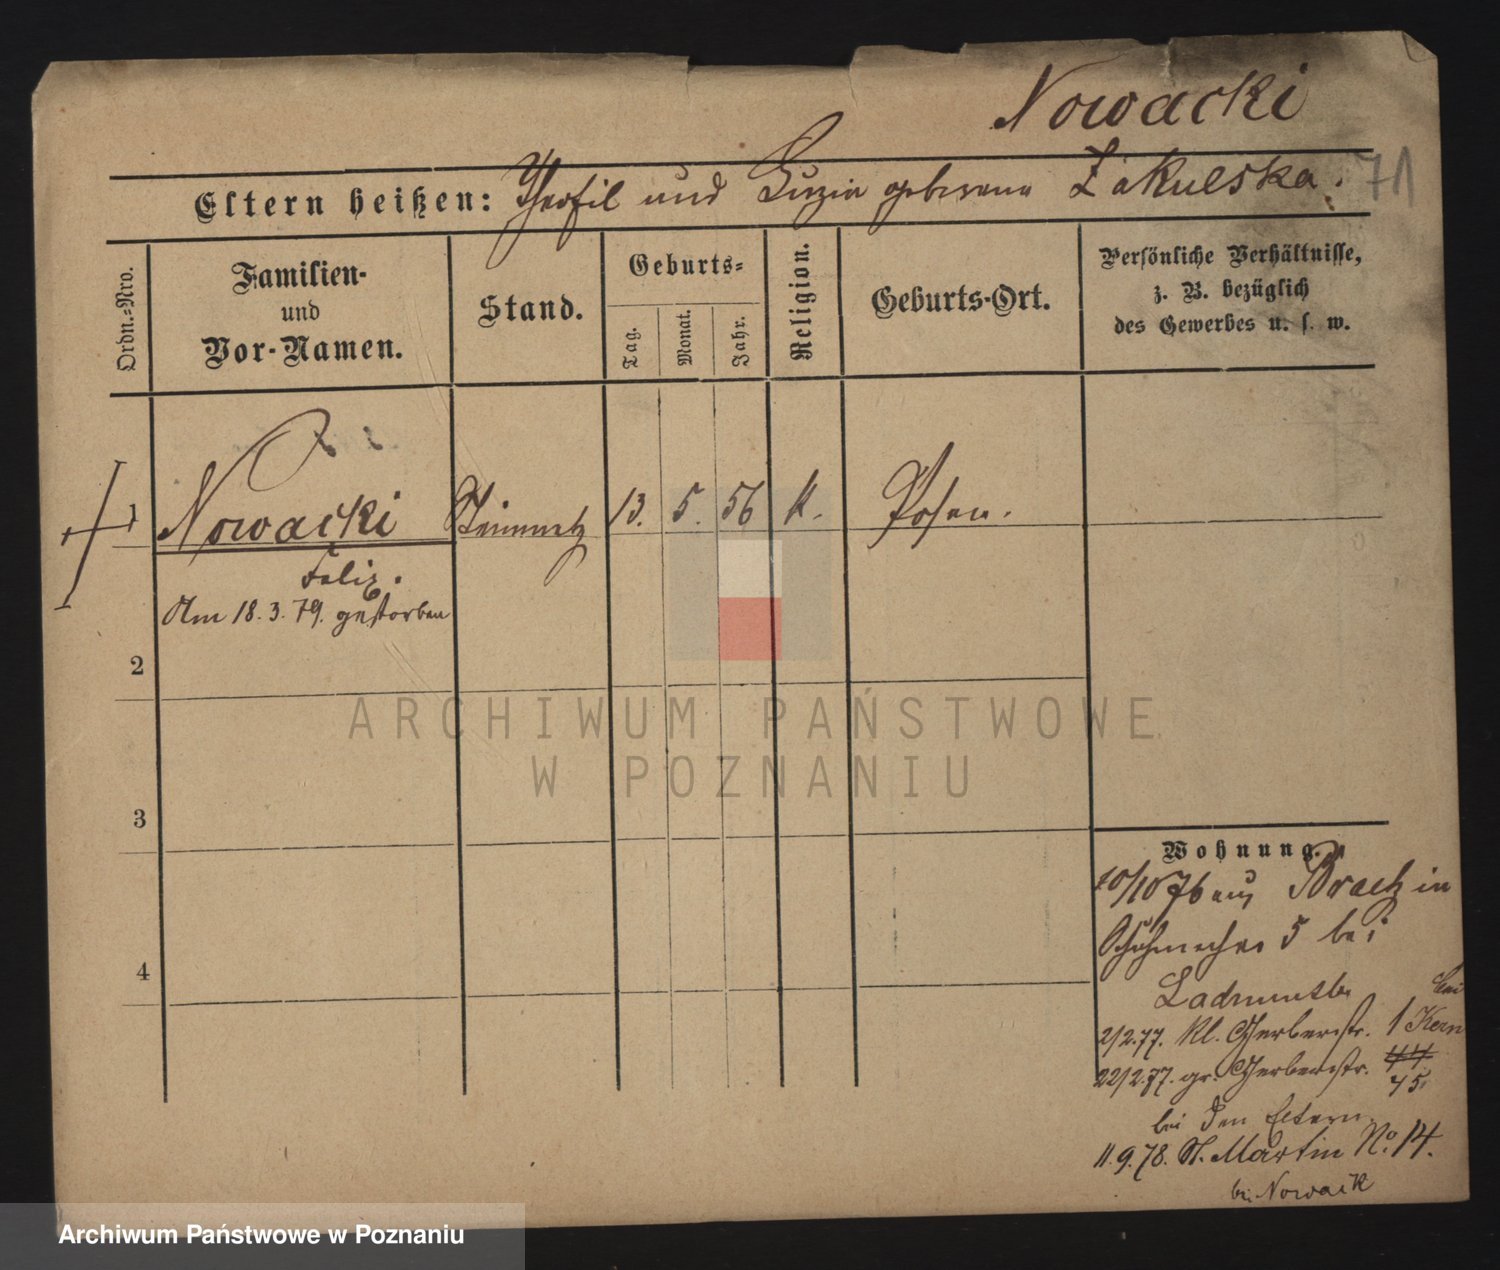 Nowacki
71
Eltern heißen: Theofil und Luzia geborene Żakulska.
Ordn.-Nro.
Familien- und Vor-Namen.
Stand.
Geburts-
Tag.
Monat.
Jahr.
Religion.
Geburts-Ort.
Persönliche Verhältnisse,
z. B. bezüglich
des Gewerbes u. s. w.
1 Nowacki Steinmetz 13. 5. 56 k. Posen.
Felix.
Am 18. 3. 79. gestorben
2
3
4
Wohnung.
10/10 76 aus in
5 bei
bei
2/2.77. kl. Gerberstr. 1 Kern
22/2.77. gr. Gerberstr. 44
45
bei den Eltern
11.9.78. St. Martin No. 14.
bei Nowack
ARCHIWUM PAŃSTWOWE
W POZNANIU
Archiwum Państwowe w Poznaniu